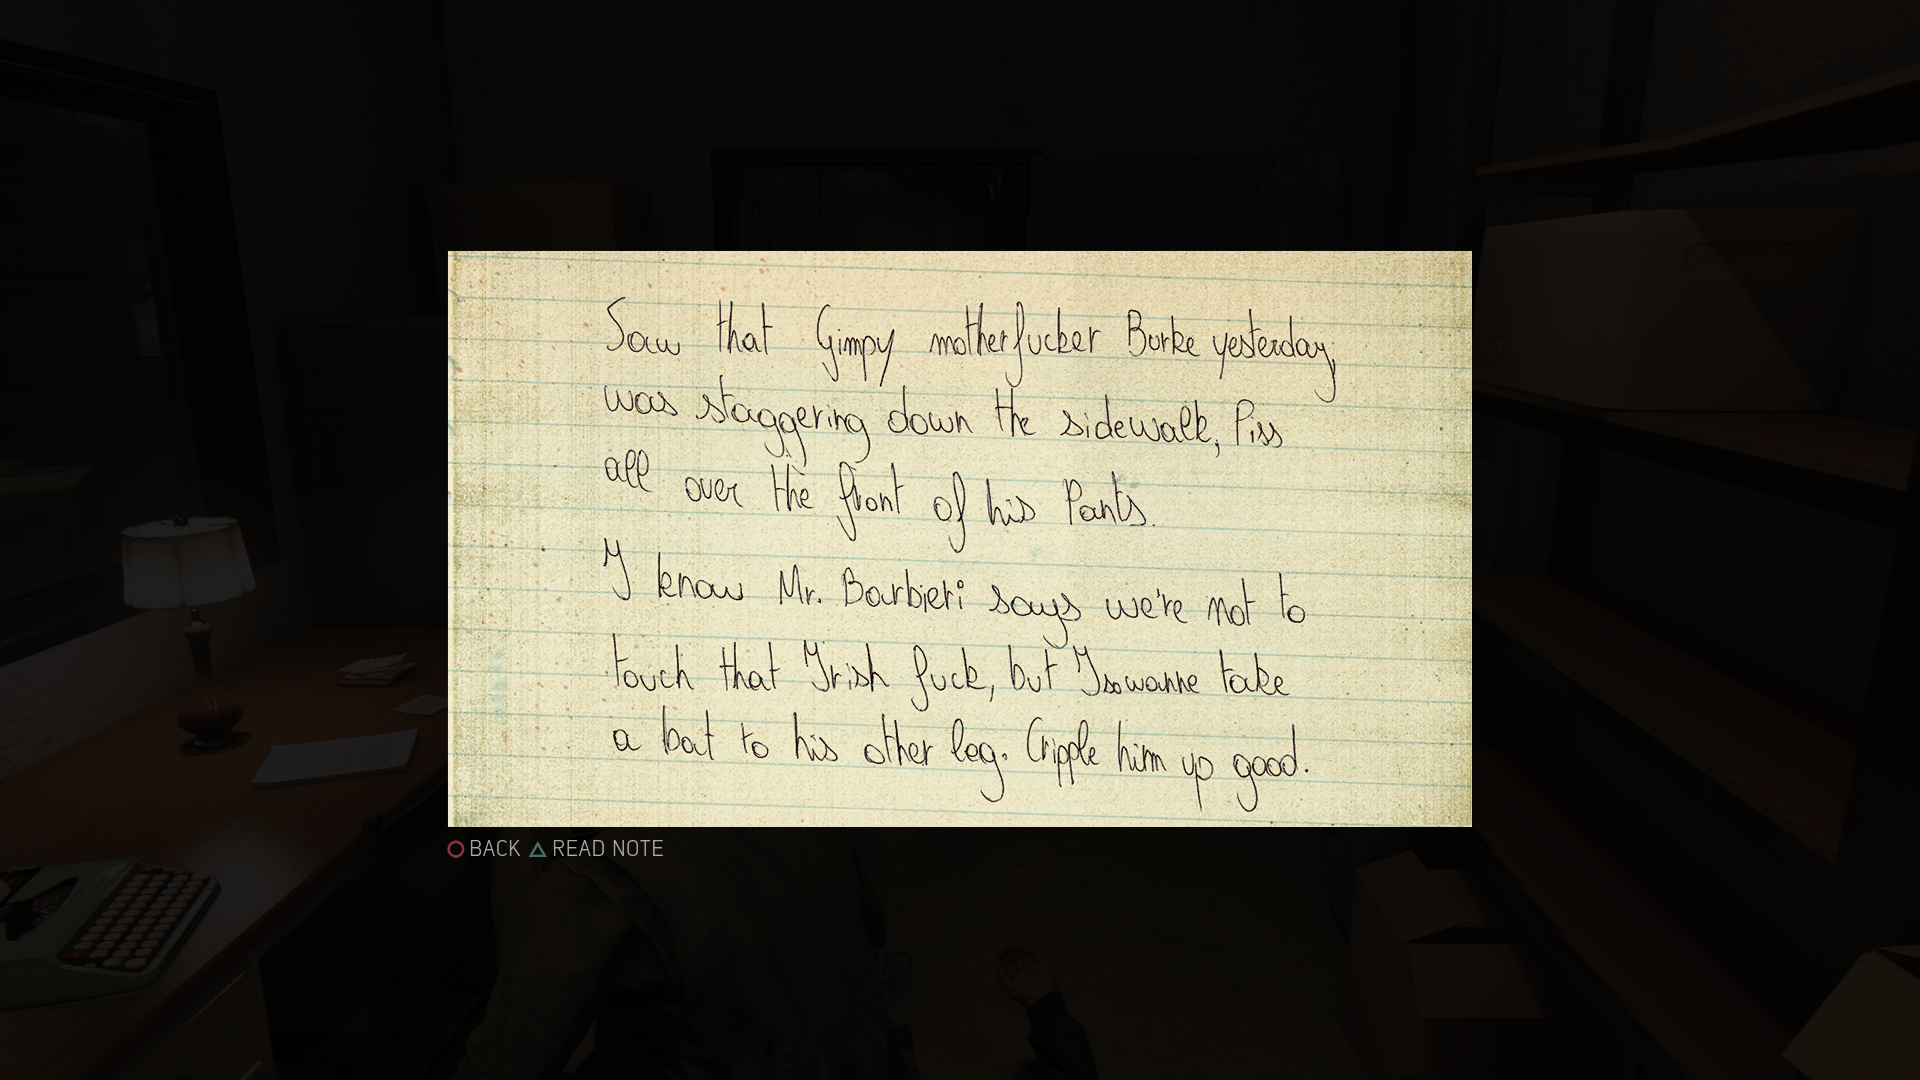 Saw that Gimpy motherfucker Burke yesterday,
was staggering down the sidewalk, Piss
all over the front of his Pants.
I know Mr. Barbieri says we're not to
touch that Irish fuck, but I so wanne take
a bat to his other leg. Cripple him up good.
BACK READ NOTE